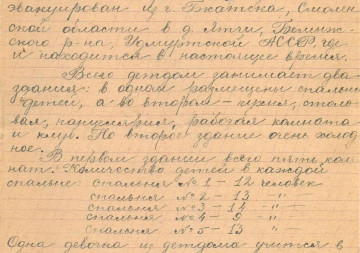 эвакуирован из г. Гжатска, Смолен
ской области в д. Ятчи,
ского р-на, Удмуртской АССР, где
и находится в настоящее время.
Всего детдом занимает два
здания: в одном размещены спальни
детей, а во втором – кухня, столо-
вая, канцелярия, рабочая комната
и клуб. Но второе здание очень холод
ное.
В первом здании всего пять ком
нат. Количество детей в каждой
спальне: спальня № 1 – 12 человек
спальня № 2 – 13 – " –
спальня № 3 – 14 – " –
спальня № 4 – 9 – " –
спальня № 5 – 13 – " –
Одна девочка из детдома учится в